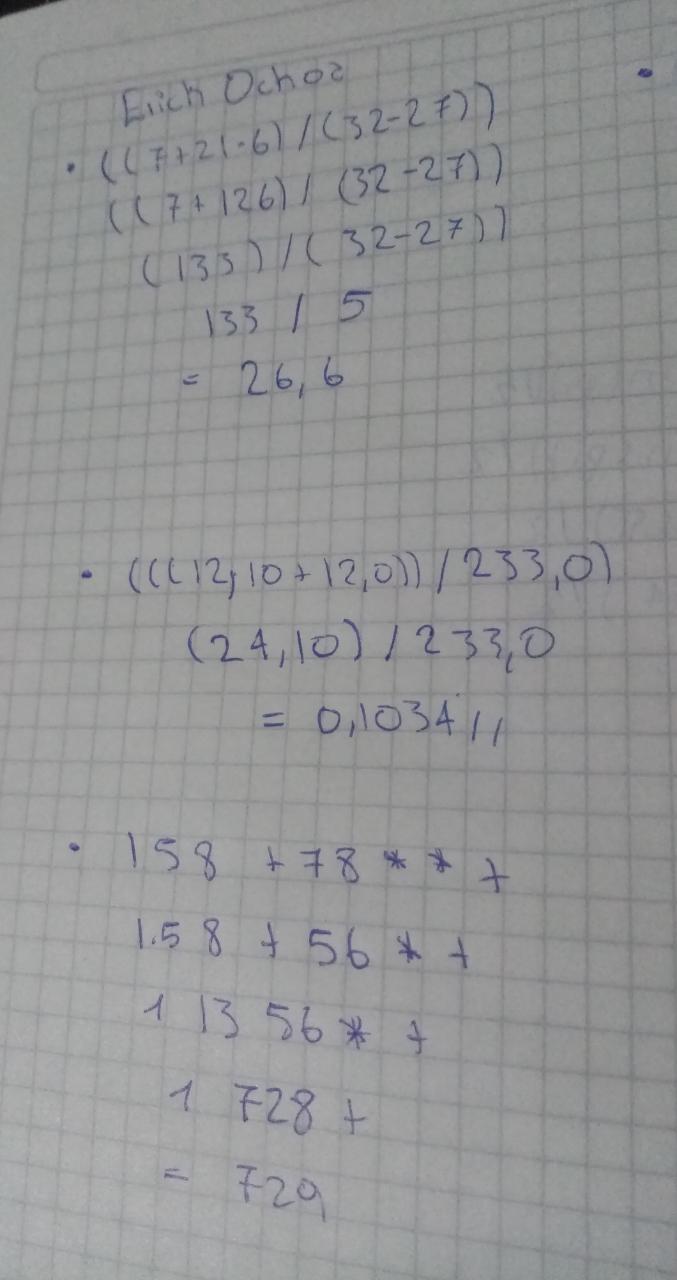 Erich Ochoa
• ((7+21·6)/(32-27))
((7+126)/(32-27))
(133)/(32-27))
133 / 5
= 26,6
• (((12,10+12,0))/233,0)
(24,10)/233,0
= 0,1034//
• 1 5 8 + 7 8 * * +
1.5 8 + 56 * +
1 13 56 * +
1 728 +
= 729